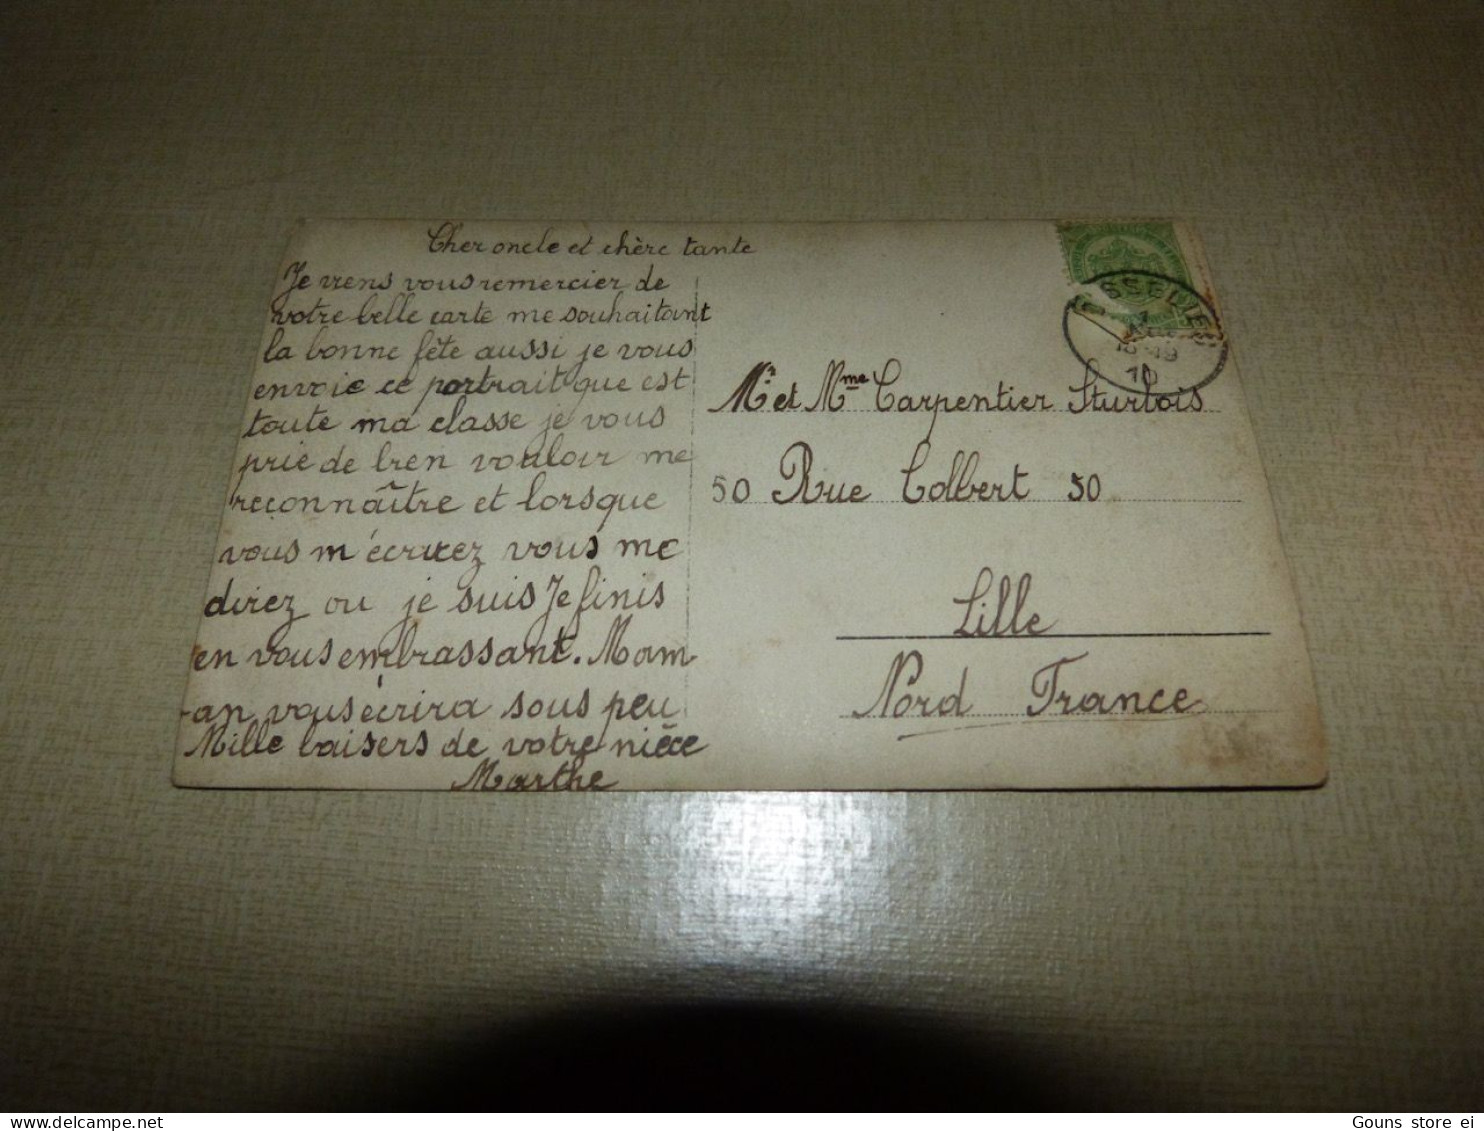 Cher oncle et chère tante
Je viens vous remercier de
votre belle carte me souhaitant
la bonne fête aussi je vous
envoie ce portrait que est
toute ma classe je vous
prie de bien vouloir me
reconnaître et lorsque
vous m'écrirez vous me
direz ou je suis Je finis
en vous embrassant. Mam
-an vous écrira sous peu
Mille baisers de votre nièce
Marthe
SSELVIE
1
18-19
10
Mr et Mme Carpentier Sturbois
50 Rue Colbert 50
Lille
Nord France
Gouns store ei